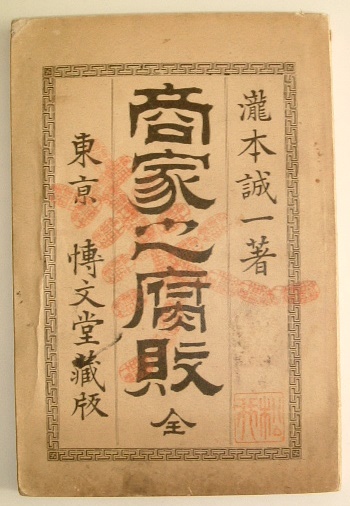 瀧本誠一著
商家之腐敗 全
東京 博文堂藏版